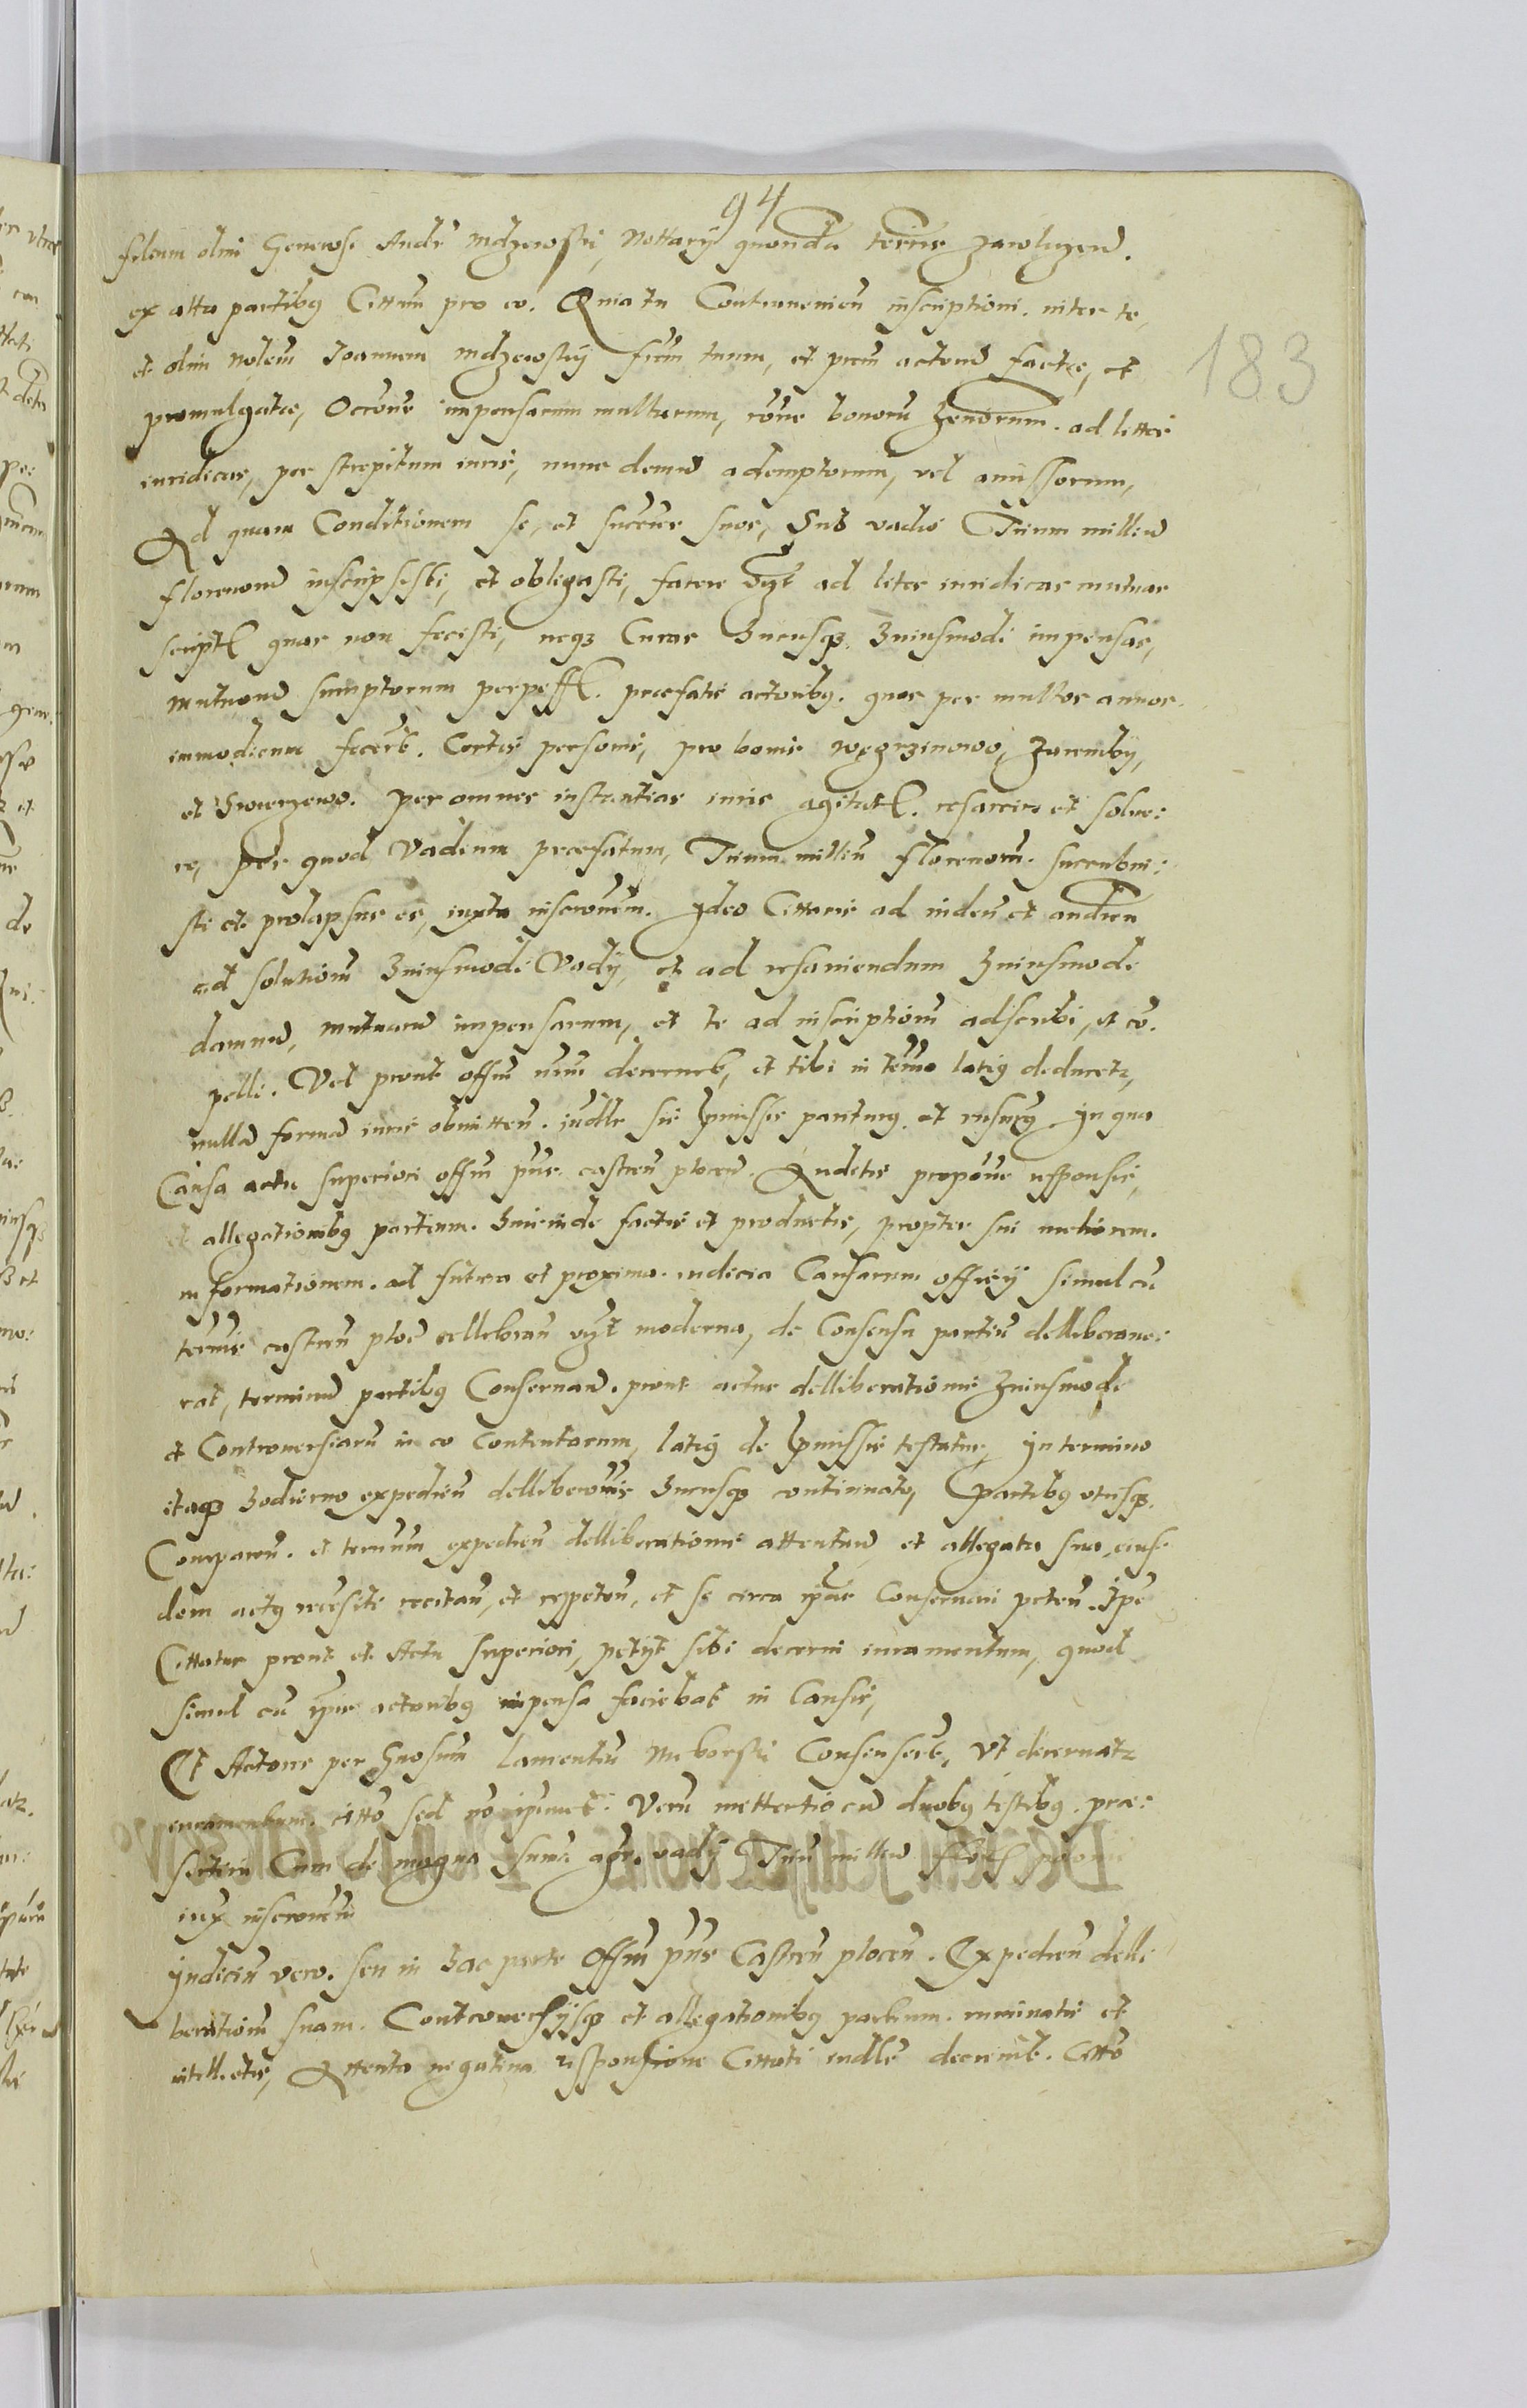 94
183
filium olim Generosi Andr Mdzewski, Nottarij quonda terrae Zawkrzen.
ex alta partibq Cittum pro eo. Quia tu Contraveniens inscriptioni. inter te,
et olim nobilem Joannem Mdzewskij frem tuum, et prem actorum factae, et
promulgatae, Occone impensarum multarum, rone bonoru hendorum. ad lites
iuridicas, per strepitum iuris, nunc demu ademptorum, vel amissorum,
Ad quam Conditionem se, et succres suos, Sub vadio Trium milliu
florenoru inscripsisti, et obligasti, facere vigt ad lites iuridicas mutuas
script quas non fecisti, neq Curas hucusq huiusmodi impensas,
mutuoru sumptorum perpess. praefatis actoribq. quas per multos annos.
immodicam fecert. Certis personis, pro bonis węgrzinowo, Zaremby,
et Swierzewo. per omnes instantias iuris agitat. resarcire et solve:
re, per quod Vadium praefatum, Trium milliu florenoru. succubui:
sti et prolapsus es, iuxta inscronem. Ideo Cittaris ad videnu et audien
ad solutionem huiusmodi Vadij, et ad resarciendum huiusmodi
damnu, mutuaru impensarum, et te ad inscriptionem adscribi, et co.
pelli. Vel prout offm nrm decernet, et tibi in termo latiq deducetr,
nulla forma iuris obmitten. iudlr sis praemissis pariturq et rnsurq In qua
Causa actu superiori offm pns castren plocen. Auditis propone responsis,
et allegationibq partium. huicinde factis et productis, propter sui meliorem.
informationem. ad futura et proxima iudicia Causarum officij simul cu
terminis castren ploc cellebran vigt moderna, de Consensu partiu delliberave:
rat, terminu partibq Conservan. prout actus delliberationis huiusmodi
et Controversiaru in eo contentarum, latiq de praemissis testatur, In termino
itaq hodierno expedien delliberonis hucusq continuato, Partibq utrisq.
Comparen. et terminum expedien delliberationis attentan, et allegata sua eius:
dem actq recensite recitan, et reppeten, et se circa ipsas Conservari peten. Ipse
Cittatus prout et Actu superiori, petyt sibi decerni iuramentum, quod
simul cu ipsis actoribq impensa faciebat in Causis,
Et Actores per Gnosum Laurentiu Mnborski Consenserut, Ut decernatr
iuramentum. citto sed no ipimet. Verum mettertio cu duobq testibq. prae:
sertim Cum de magna sumae agr. vadij Triu milliu floren
iux inscronem
Iudiciu vero. seu in hac parte Offm pns Castren plocen. Expedien delli
beratione suam. Controversijsq et allegationibq partium. ruminatis et
intellectis, Attenta negativa responsione Cittati iudlr decrevit. Citto